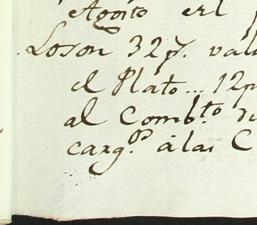 Agosto el
Loson 32 p.s vale
el Plato... 12 p
al Comb.to
carg.os á las C